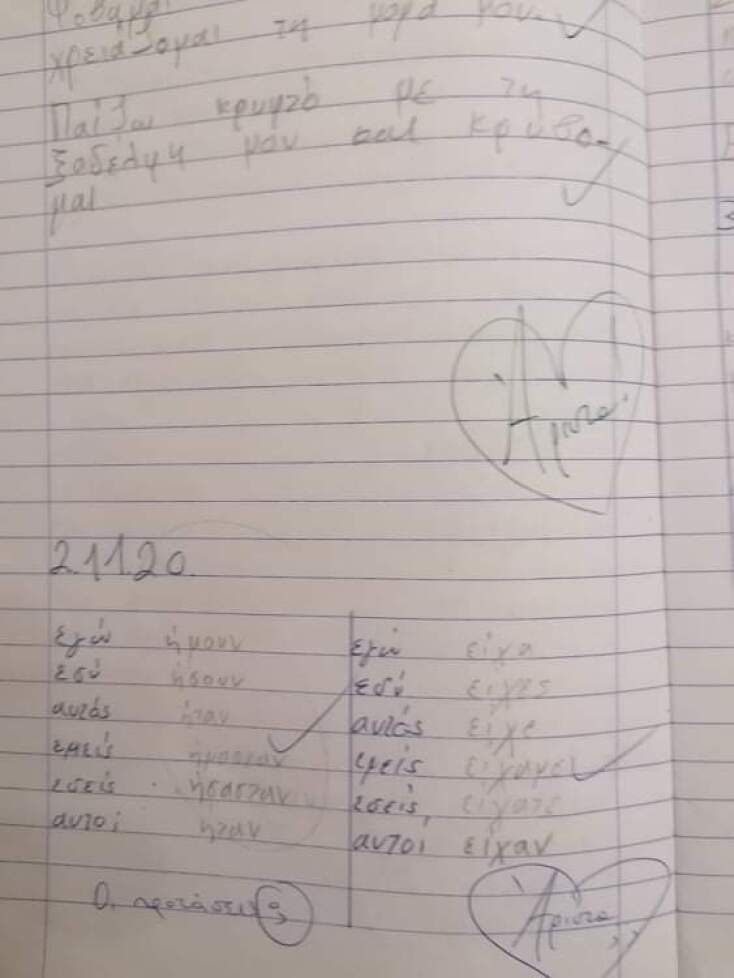 Φοβάμαι
χρειάζομαι τη μαμά μου.
Παίζω κρυφτό με τη
ξαδέλφη μου και κρύβο-
μαι
Άριστα!
2.11.20.
εγώ ήμουν
εσύ ήσουν
αυτός ήταν
εμείς ήμασταν
εσείς ήσασταν
αυτοί ήταν
εγώ είχα
εσύ είχες
αυτός είχε
εμείς είχαμε
εσείς είχατε
αυτοί είχαν
Οι προτάσεις;
Άριστα!!